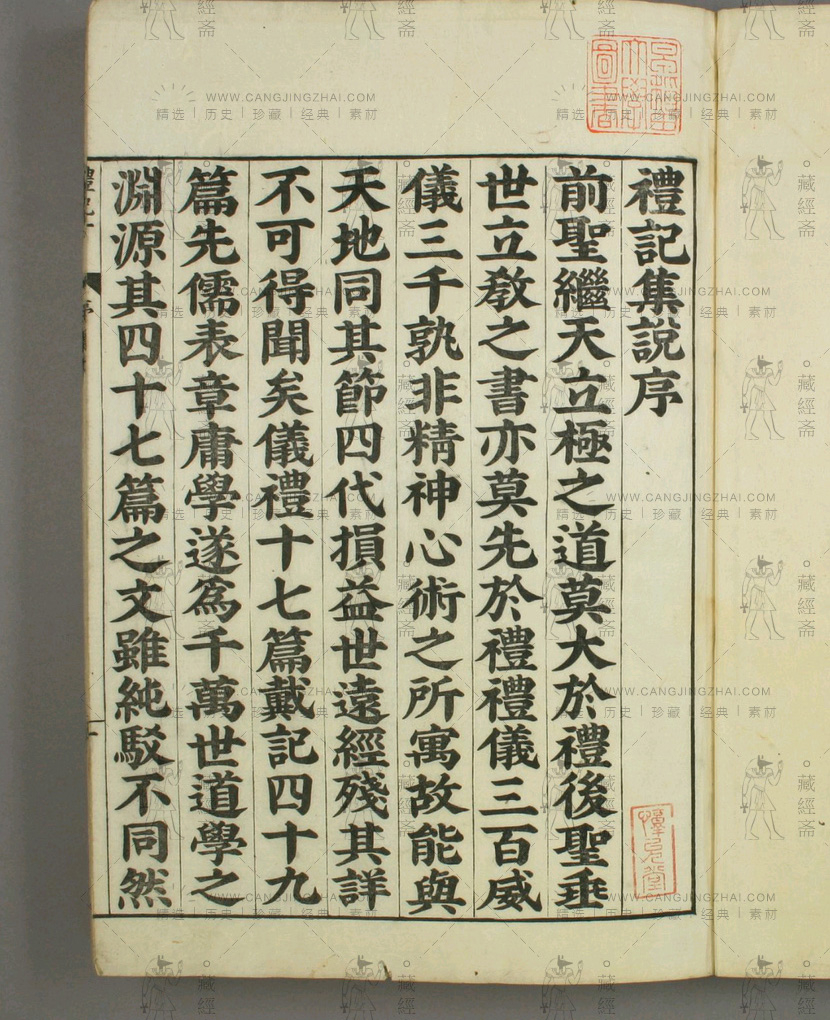 禮記集說序
前聖繼天立極之道莫大於禮後聖垂
世立敎之書亦莫先於禮禮儀三百威
儀三千孰非精神心術之所寓故能與
天地同其節四代損益世遠經殘其詳
不可得聞矣儀禮十七篇戴記四十九
篇先儒表章庸學遂爲千萬世道學之
淵源其四十七篇之文雖純駁不同然
WWW.CANGJINGZHAI.COM
精选 | 历史 | 珍藏 | 经典 | 素材
藏經斋